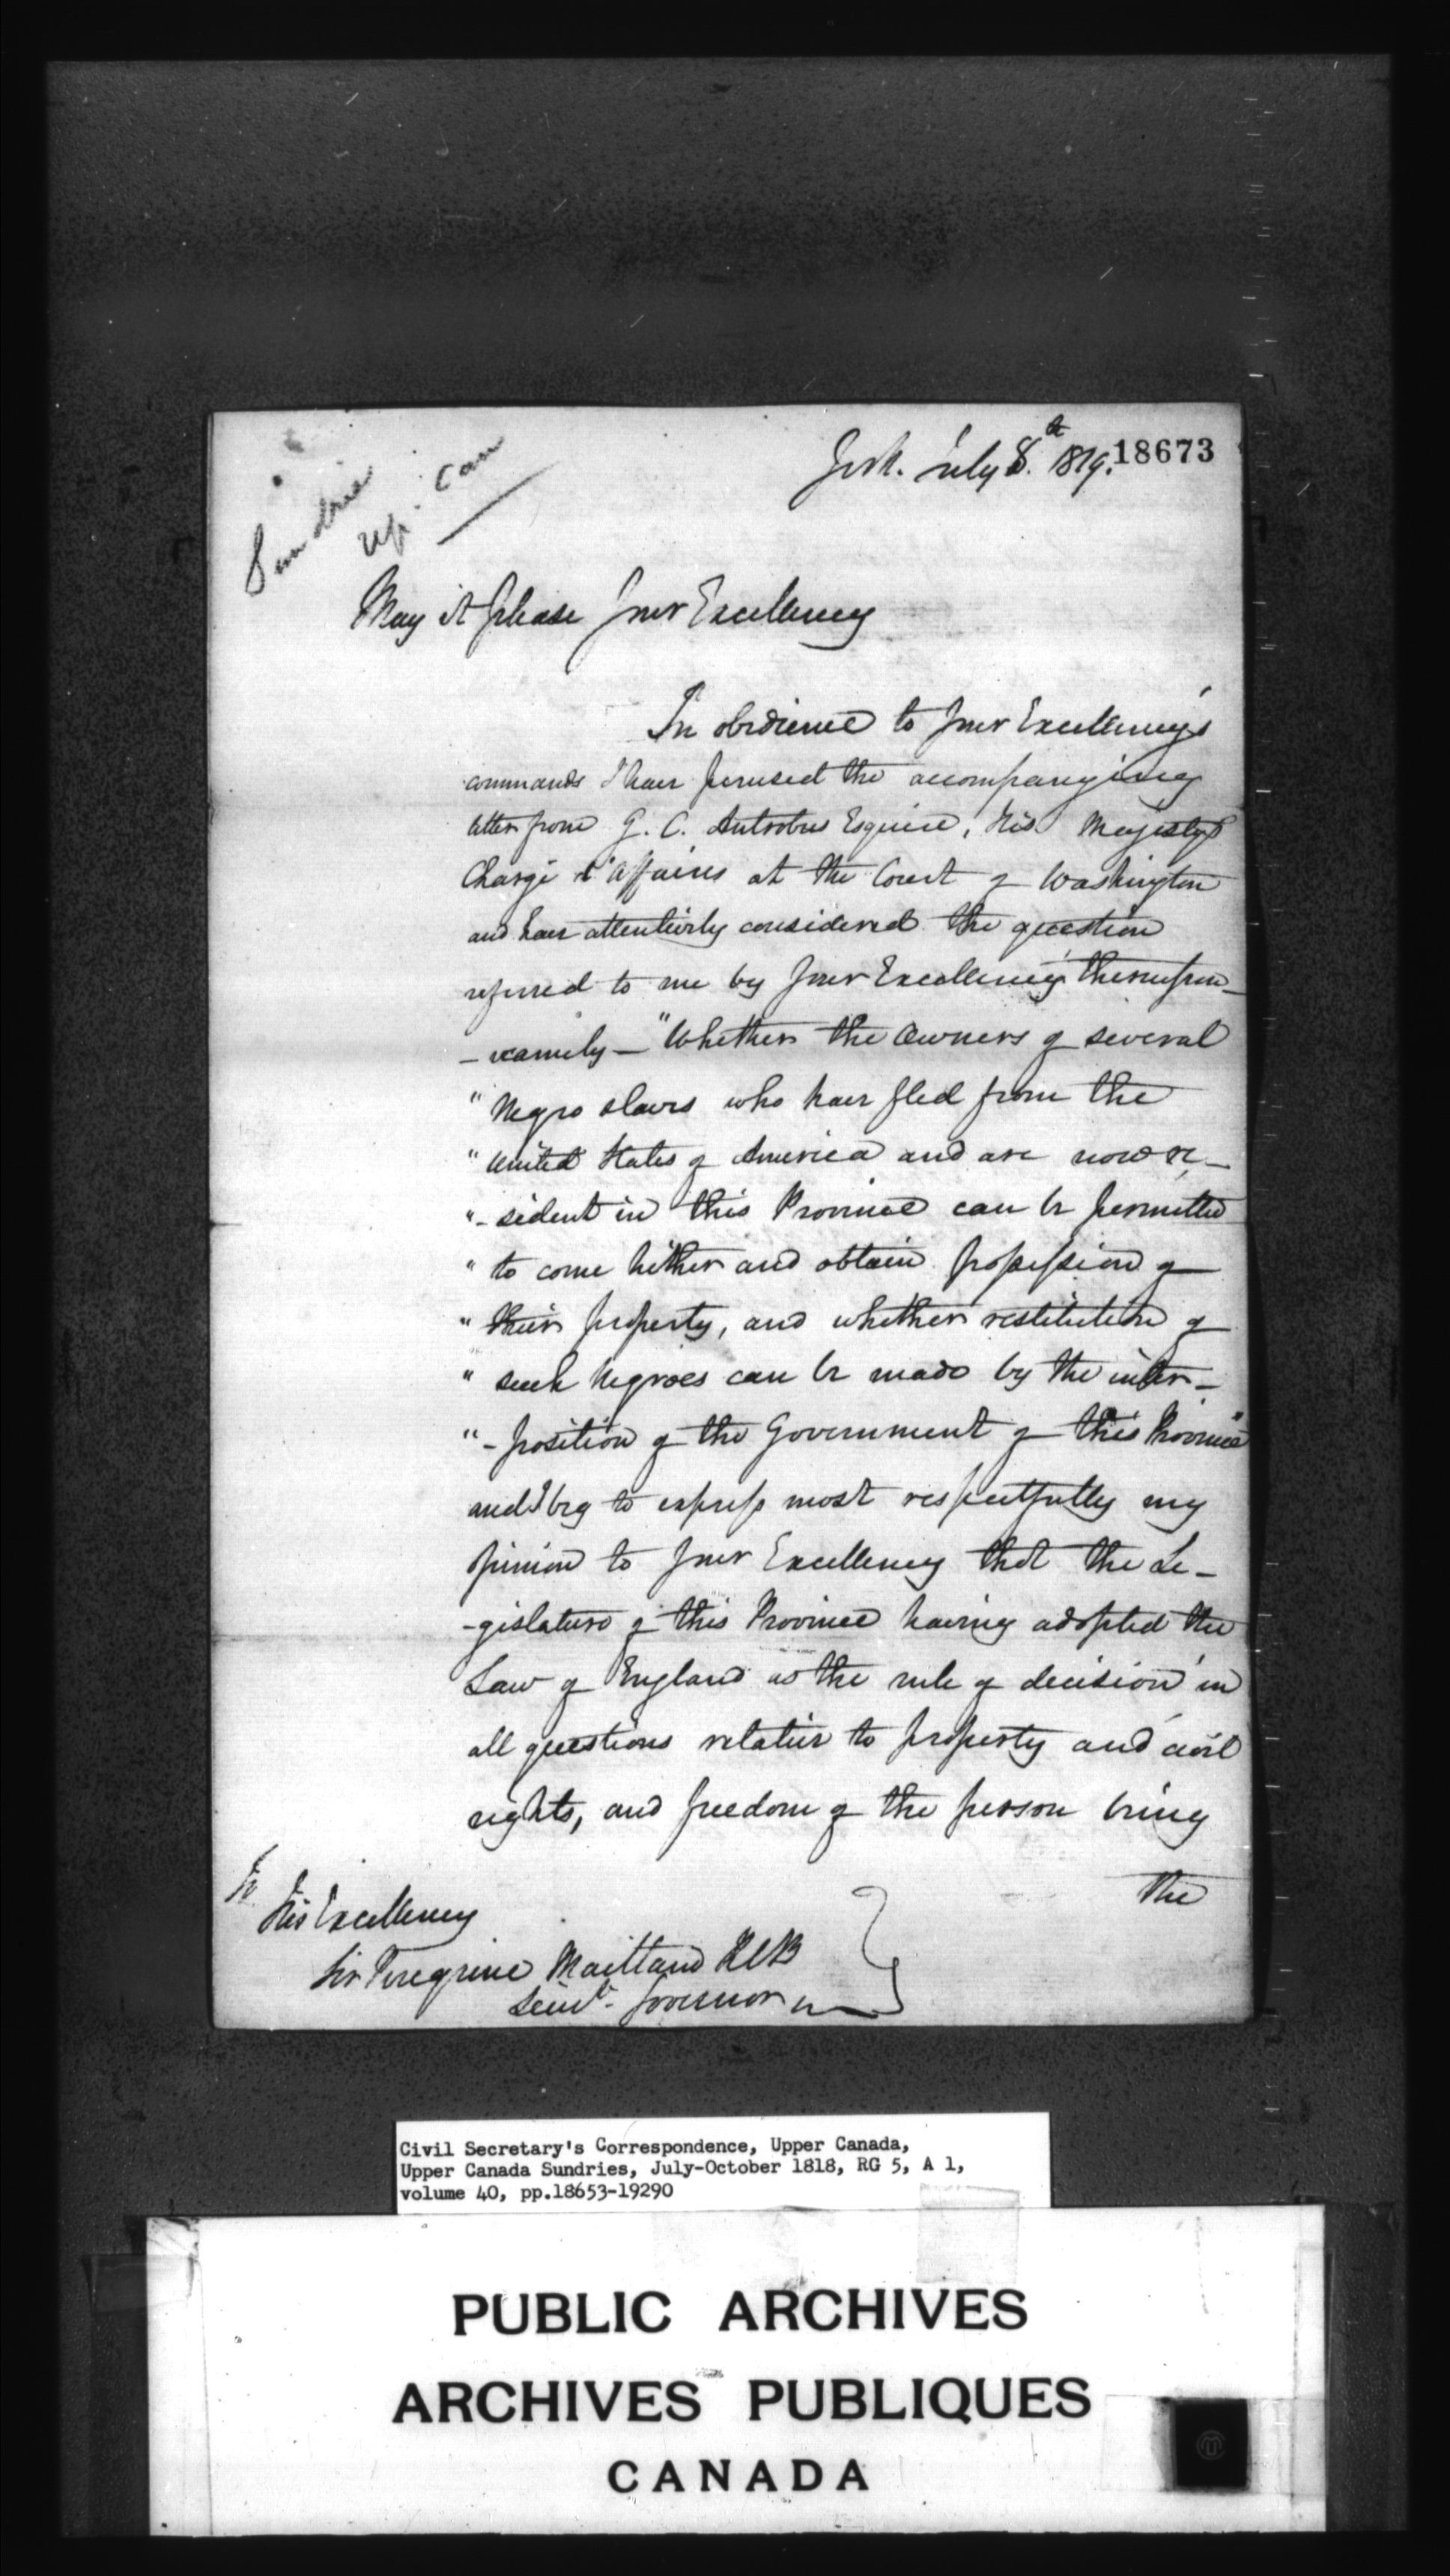 York. July 8.th 1819. 18673
Sundries
Up. Can
May it please Your Excellency
In obedience to Your Excellency's
commands I have perused the accompanying
letter from G. C. Antrobus Esquire, His Majesty's
Chargé d'Affaires at the Court of Washington
and have attentively considered the question
referred to me by Your Excellency thereupon_
_ namely _ "Whether the Owners of several
" Negro slaves who have fled from the
" United States of America and are now re_
"- sident in this Province can be permitted
" to come hither and obtain possession of
" their property, and whether restitution of
" such Negroes can be made by the inter_
"- position of the Government of this Province"
and I beg to express most respectfully my
opinion to Your Excellency that the Le_
-gislature of this Province having adopted the
Law of England as the rule of decision in
all questions relative to property and civil
rights, and freedom of the person being
the
To
His Excellency
Sir Peregrine Maitland KCB
Lieut. Governor
Civil Secretary's Correspondence, Upper Canada,
Upper Canada Sundries, July-October 1818, RG 5, A 1,
volume 40, pp.18653-19290
PUBLIC ARCHIVES
ARCHIVES PUBLIQUES
CANADA